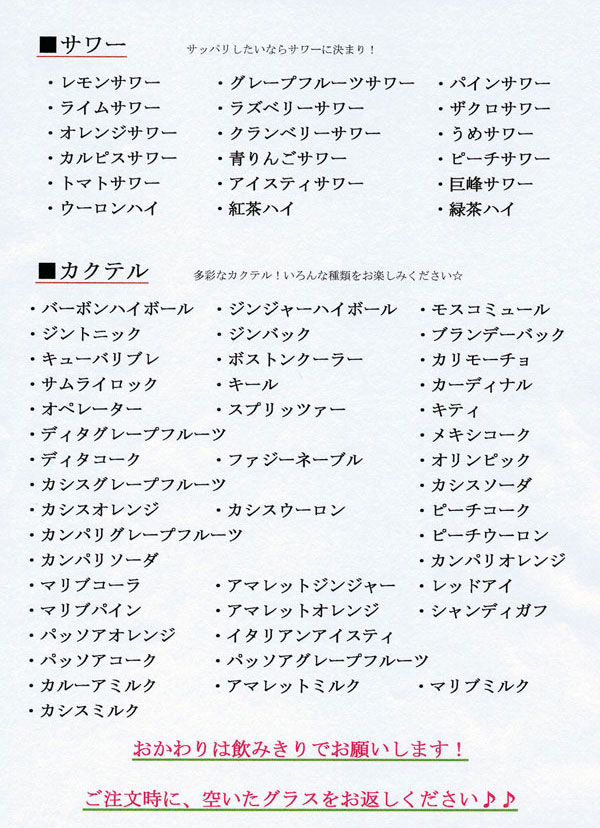 ■サワー　サッパリしたいならサワーに決まり！
・レモンサワー　・グレープフルーツサワー　・パインサワー
・ライムサワー　・ラズベリーサワー　・ザクロサワー
・オレンジサワー　・クランベリーサワー　・うめサワー
・カルピスサワー　・青りんごサワー　・ピーチサワー
・トマトサワー　・アイスティサワー　・巨峰サワー
・ウーロンハイ　・紅茶ハイ　・緑茶ハイ
■カクテル　多彩なカクテル！いろんな種類をお楽しみください☆
・バーボンハイボール　・ジンジャーハイボール　・モスコミュール
・ジントニック　・ジンバック　・ブランデーバック
・キューバリブレ　・ボストンクーラー　・カリモーチョ
・サムライロック　・キール　・カーディナル
・オペレーター　・スプリッツァー　・キティ
・ディタグレープフルーツ　・メキシコーク
・ディタコーク　・ファジーネーブル　・オリンピック
・カシスグレープフルーツ　・カシスソーダ
・カシスオレンジ　・カシスウーロン　・ピーチコーク
・カンパリグレープフルーツ　・ピーチウーロン
・カンパリソーダ　・カンパリオレンジ
・マリブコーラ　・アマレットジンジャー　・レッドアイ
・マリブパイン　・アマレットオレンジ　・シャンディガフ
・パッソアオレンジ　・イタリアンアイスティ
・パッソアコーク　・パッソアグレープフルーツ
・カルーアミルク　・アマレットミルク　・マリブミルク
・カシスミルク
おかわりは飲みきりでお願いします！
ご注文時に、空いたグラスをお返しください♪♪